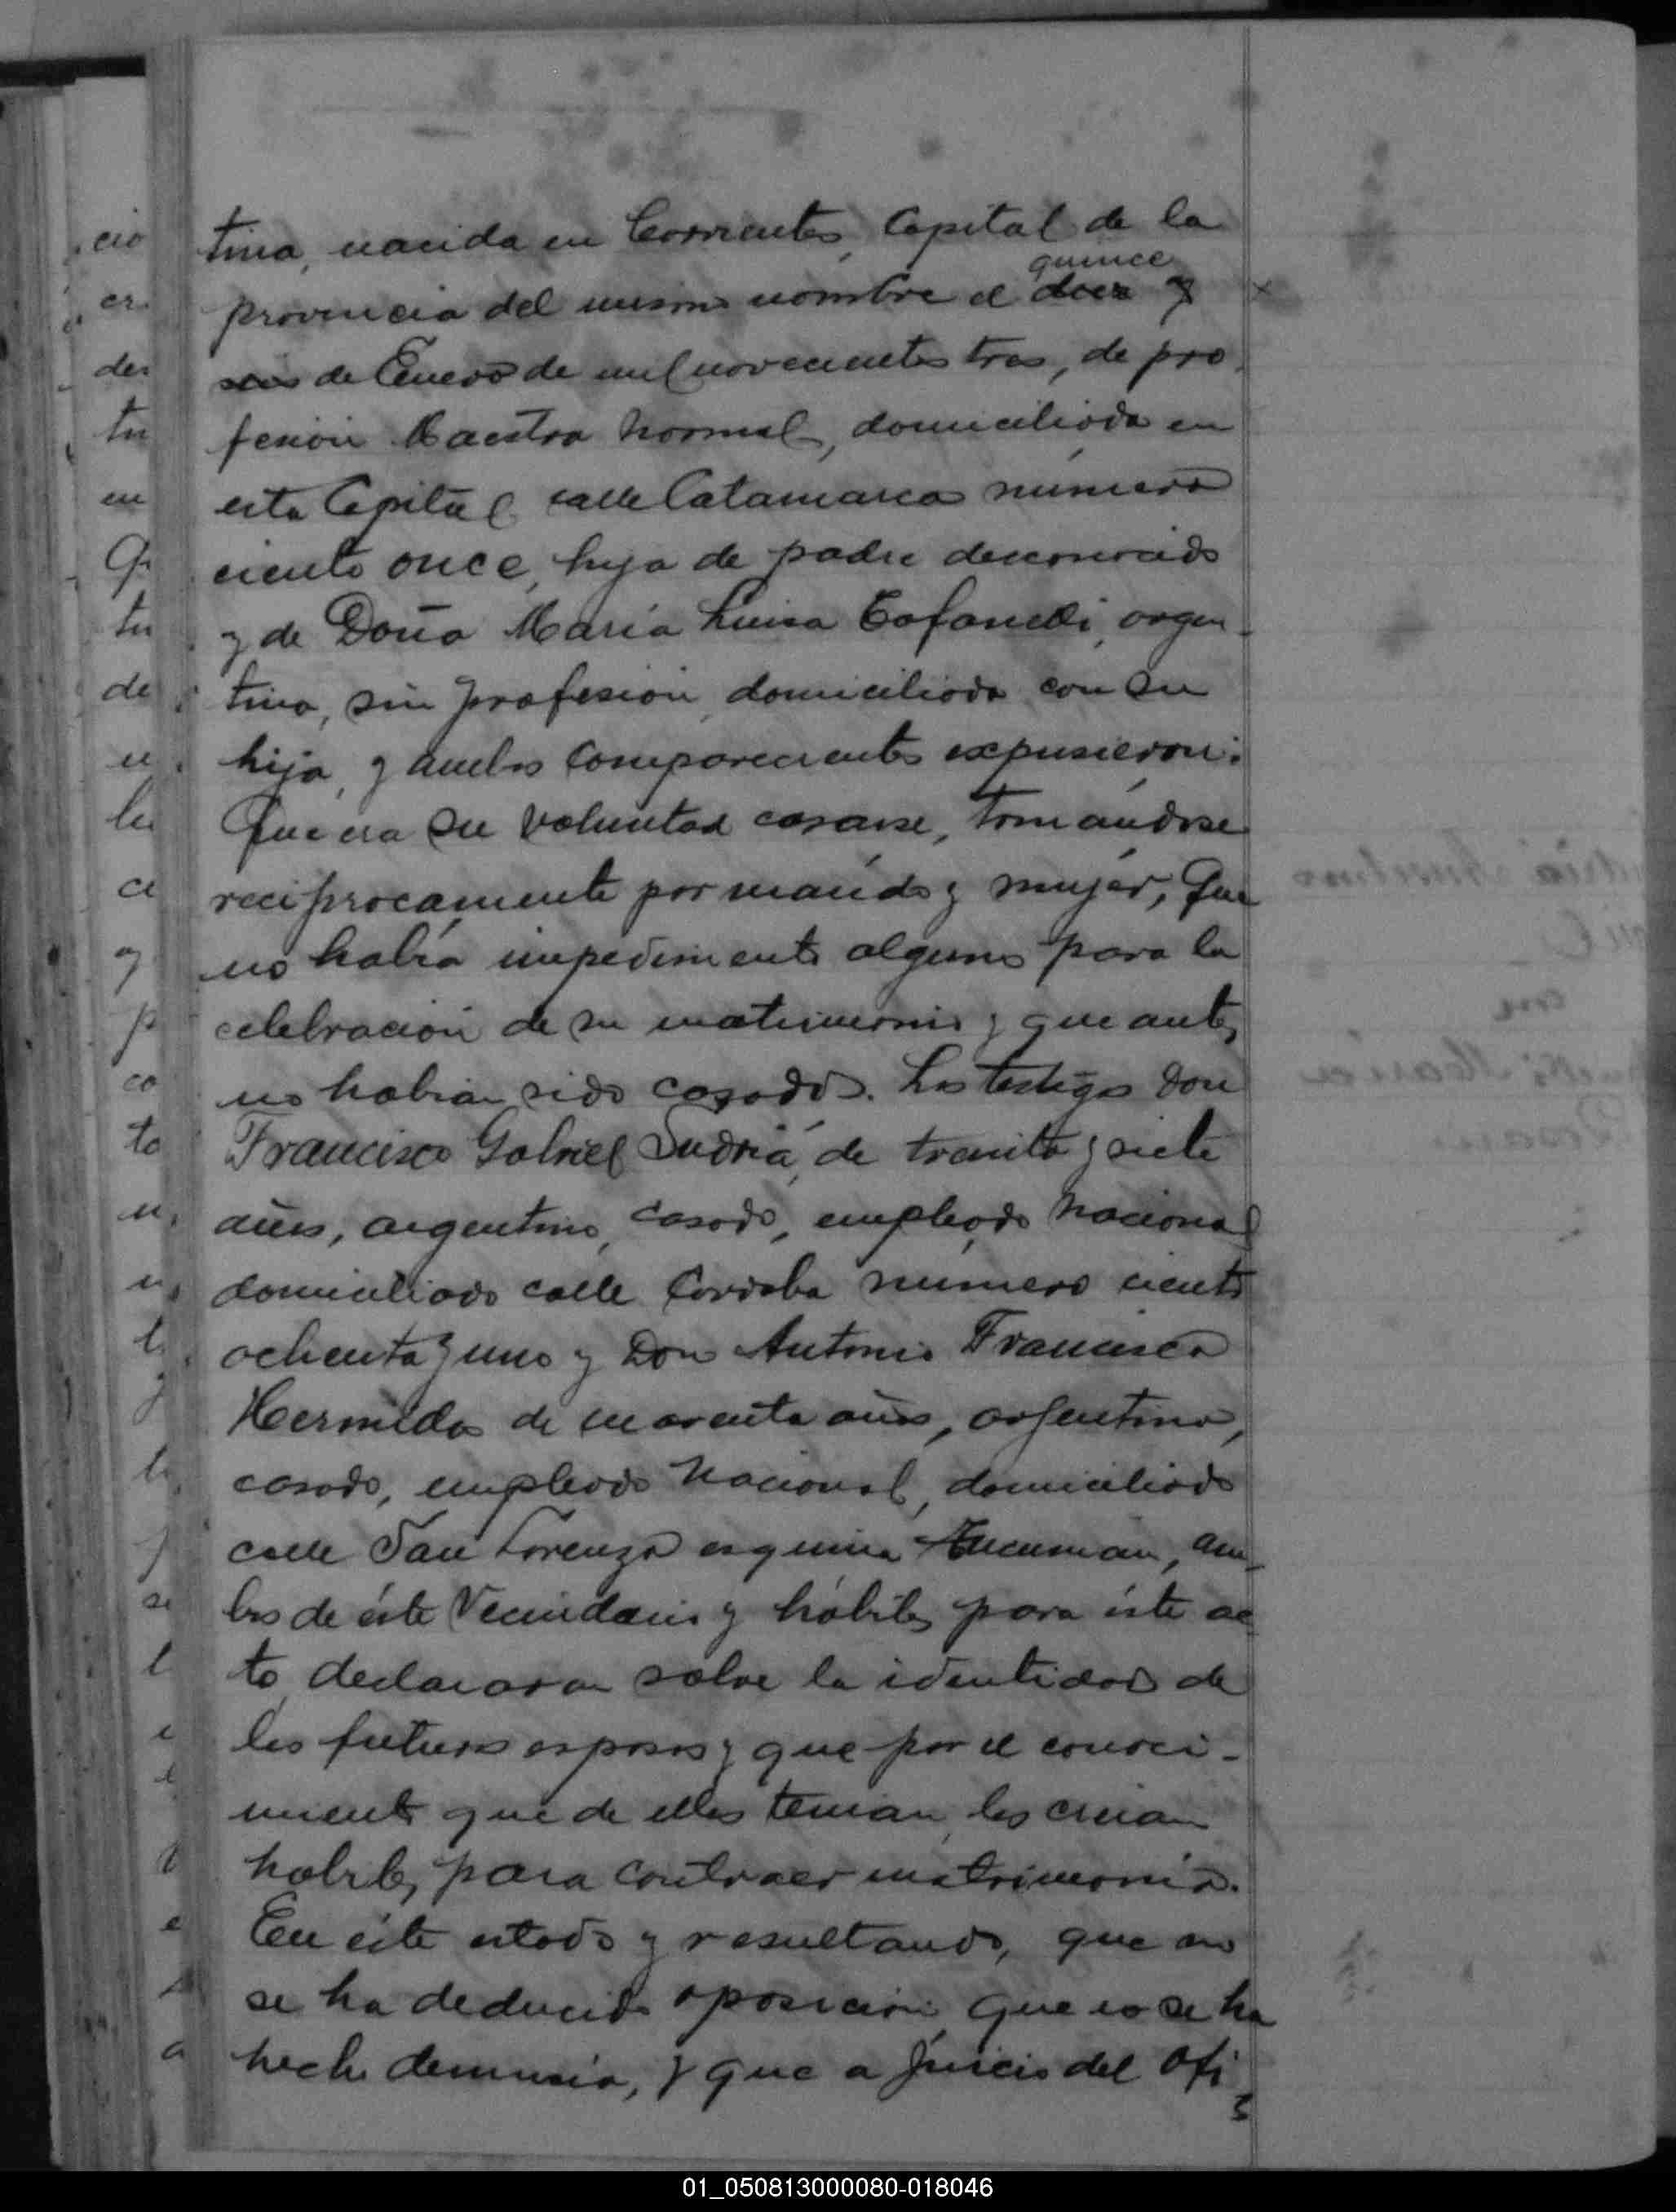 tina, nacida en Corrientes, Capital de la
quince
provincia del mismo nombre el diez y
seis de Enero de mil novecientos tres, de pro
fesión Maestra Normal, domiciliada en
esta Capital calle Catamarca número
ciento once, hija de padre desconocido
y de Doña María Luisa Cafanelli, argen-
tina, sin profesión, domiciliada con su
hija, y ambos comparecientes expusieron:
Que era su voluntad casarse, tomándose
recíprocamente por marido y mujer, que
no había impedimento alguno para la
celebración de su matrimonio y que antes
no habían sido casados. Los testigos Don
Francisco Gabriel Sudriá, de treinta y siete
años, argentino, casado, empleado Nacional
domiciliado calle Cordoba número ciento
ochenta y uno y Don Antonio Francisco
Hermida de cuarenta años, argentino,
casado, empleado Nacional, domiciliado
calle San Lorenzo esquina Tucuman, am-
bos de éste Vecindario y hábiles para éste ac
to declararon sobre la identidad de
los futuros esposos y que por el conoci-
miento que de ellos tenian, los creian
habiles para contraer matrimonio.
En éste estado y resultando, que no
se ha deducido oposición, que no se ha
hecho denuncia, y que a juicio del Ofi
01_050813000080-018046